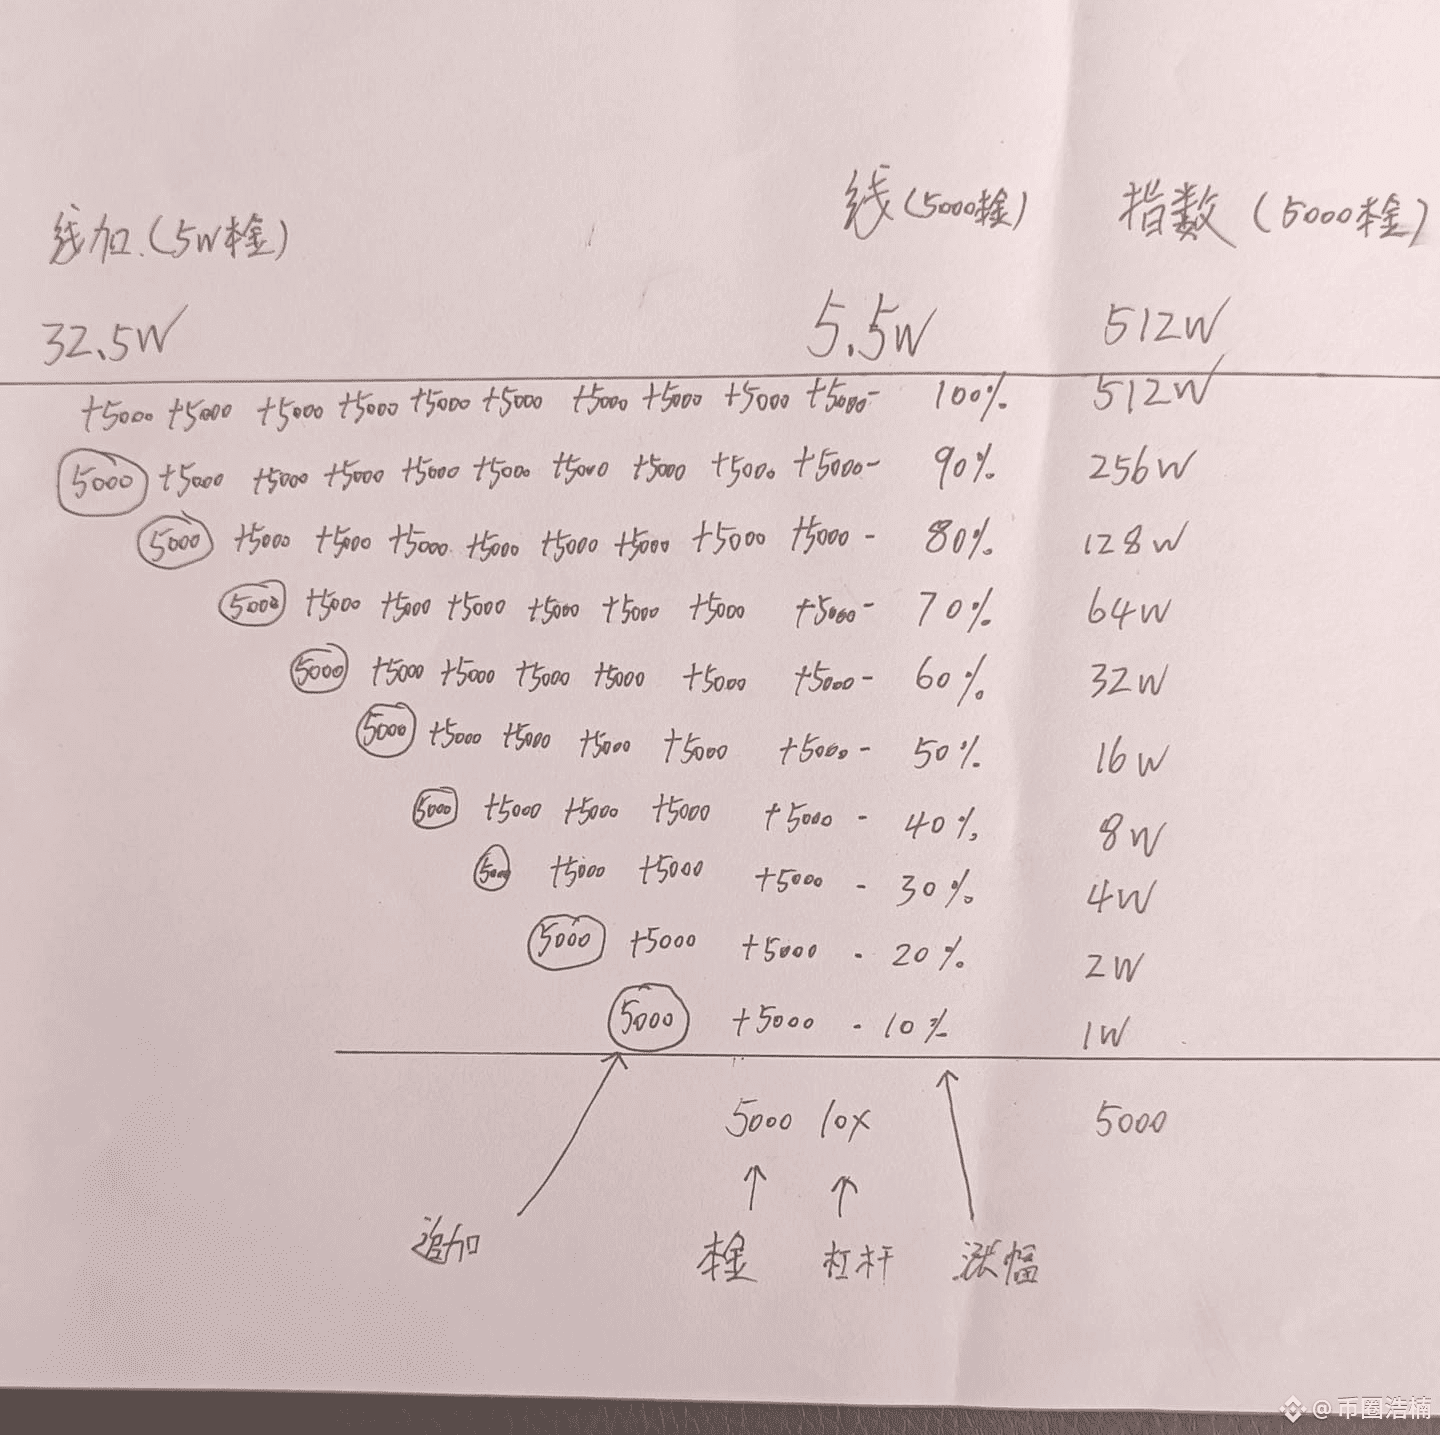 线加.(5W本金) 线(5000本金) 指数(5000本金)
32.5W 5.5W 512W
+5000 +5000 +5000 +5000 +5000 +5000 +5000 +5000 +5000 +5000- 100% 512W
5000 +5000 +5000 +5000 +5000 +5000 +5000 +5000 +5000 +5000- 90% 256W
5000 +5000 +5000 +5000 +5000 +5000 +5000 +5000 +5000- 80% 128W
5000 +5000 +5000 +5000 +5000 +5000 +5000 +5000- 70% 64W
5000 +5000 +5000 +5000 +5000 +5000 +5000- 60% 32W
5000 +5000 +5000 +5000 +5000 +5000- 50% 16W
5000 +5000 +5000 +5000 +5000 - 40% 8W
5000 +5000 +5000 +5000 - 30% 4W
5000 +5000 +5000 - 20% 2W
5000 +5000 - 10% 1W
5000 10X 5000
追加 本金 杠杆 涨幅
@币圈浩楠